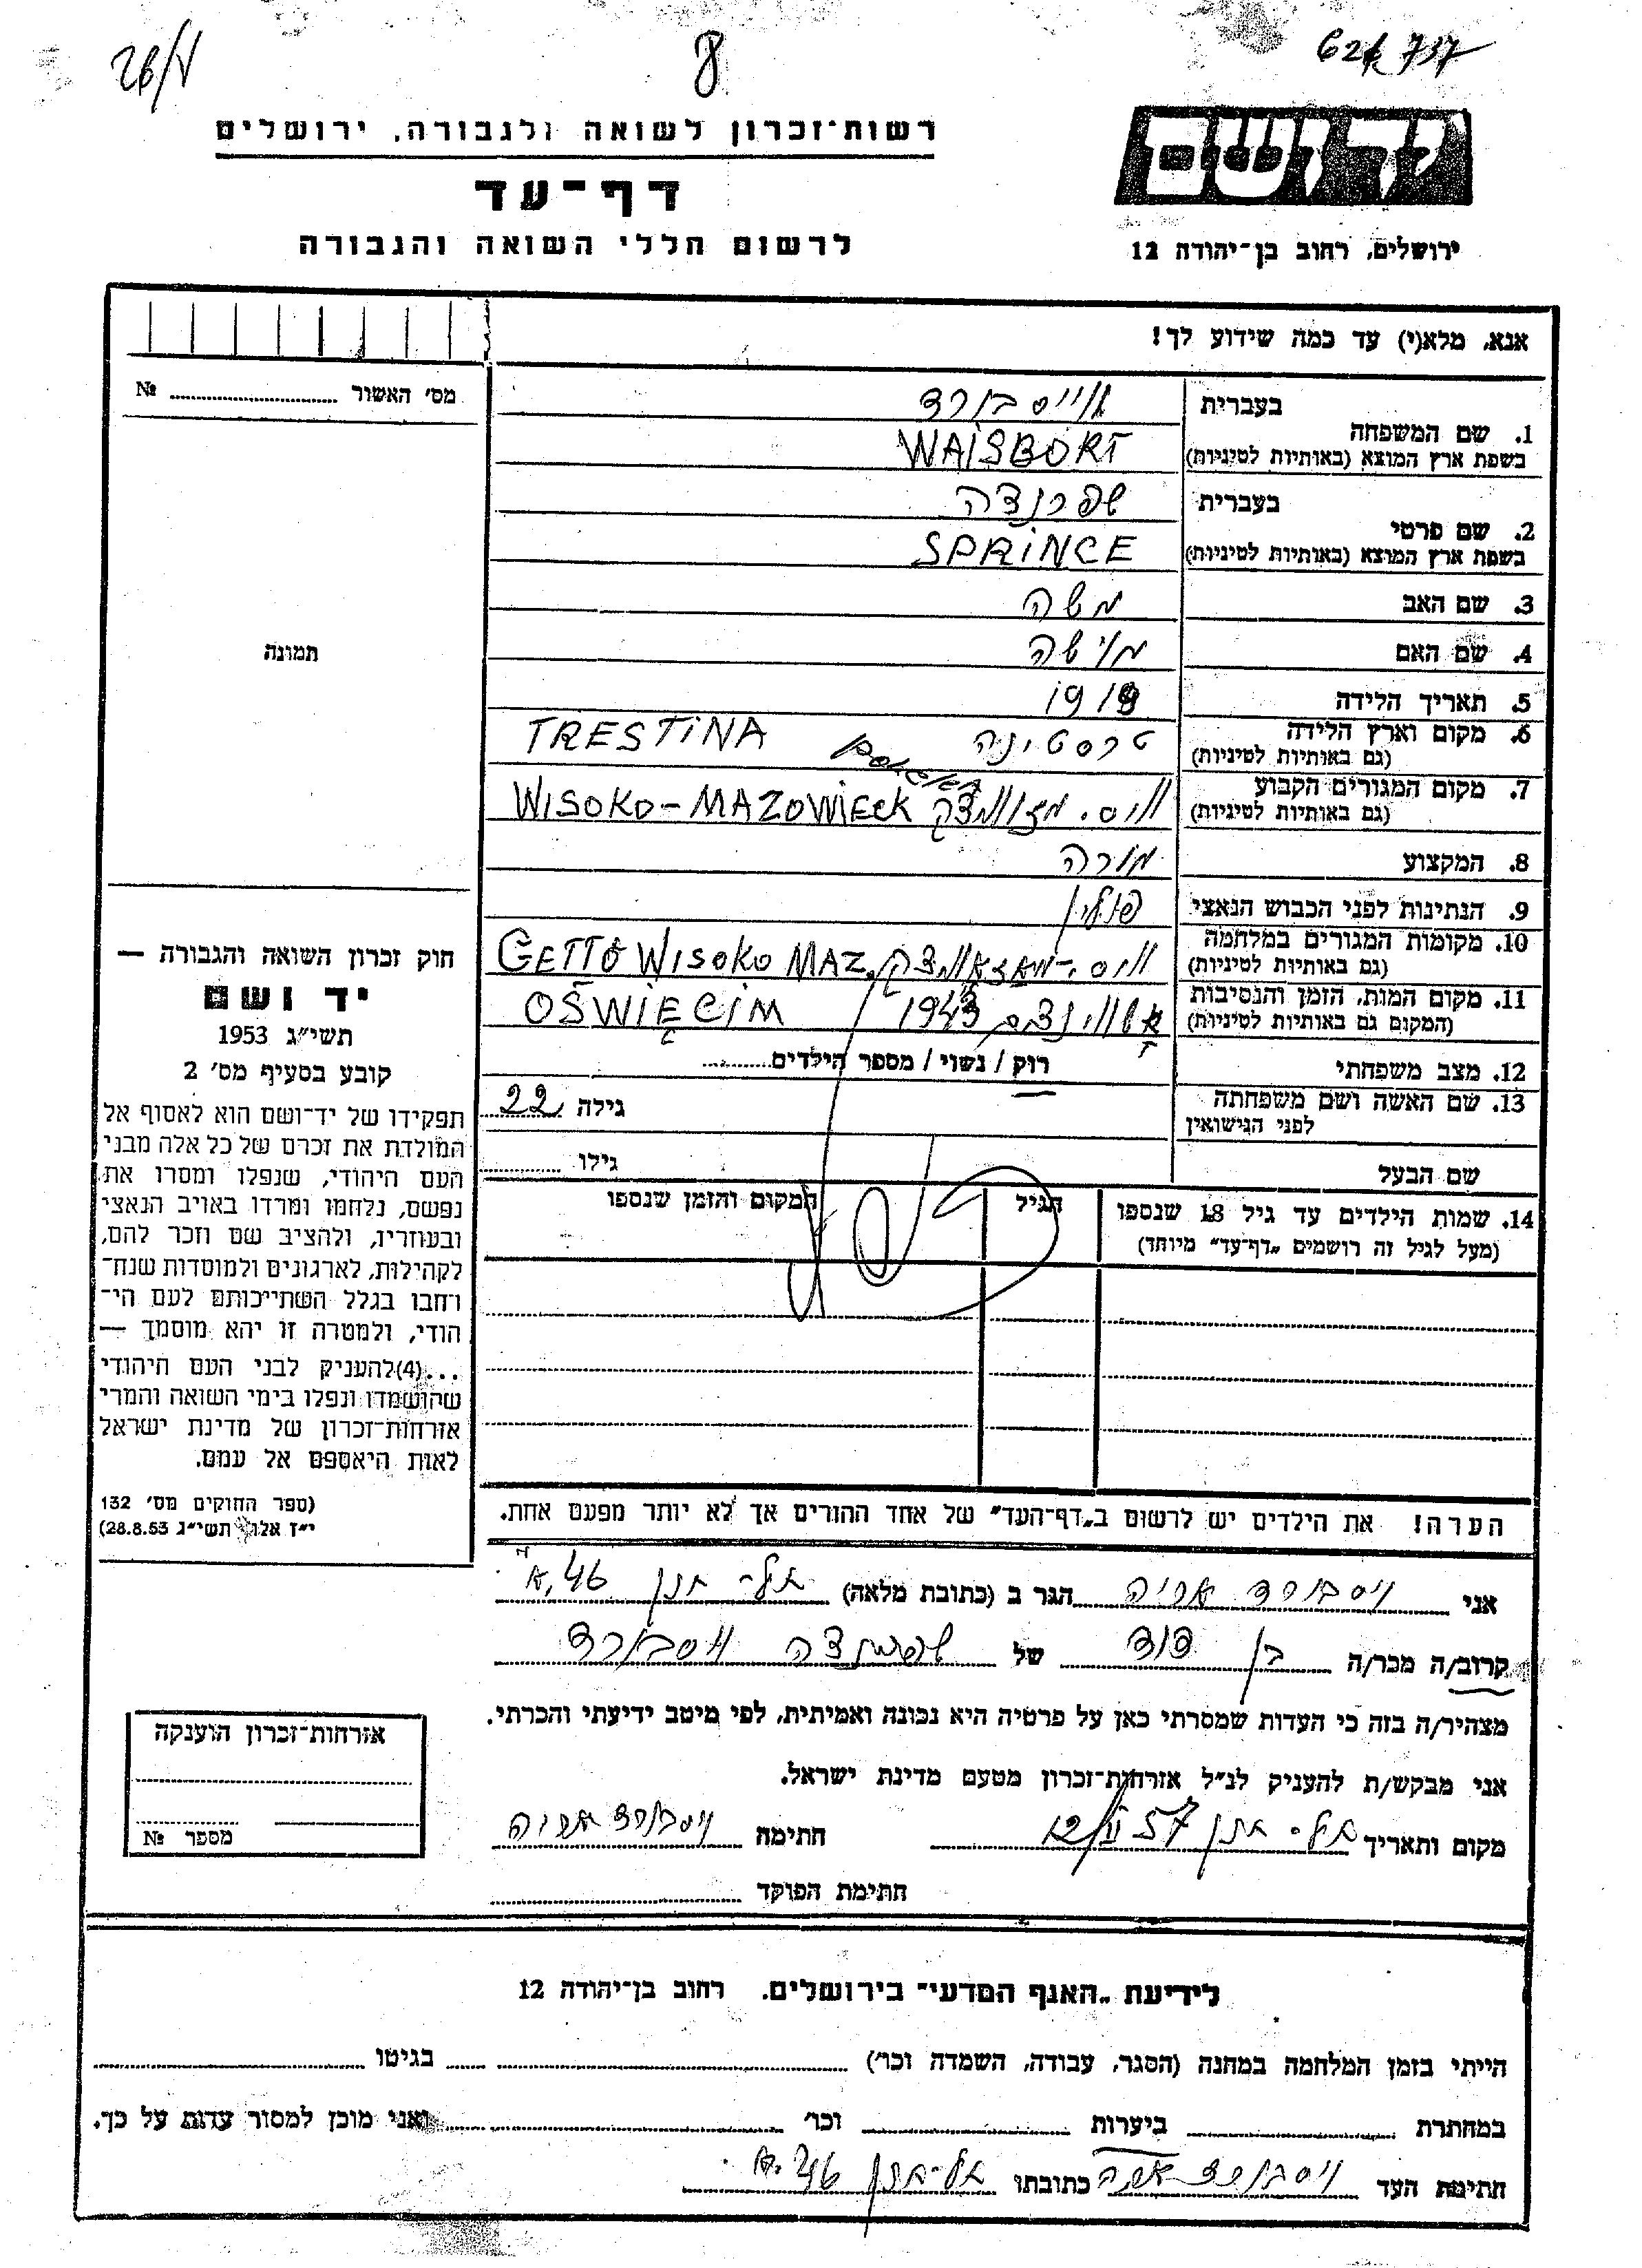 26/V
8
621 737
רשות-זכרון לשואה ולגבורה, ירושלים
יד ושם
דף-עד
לרשום חללי השואה והגבורה
ירושלים, רחוב בן-יהודה 12
אנא, מלא(י) עד כמה שידוע לך!
מס' האשור № ....................
בעברית
1. שם המשפחה
בשפת ארץ המוצא (באותיות לטיניות)
ווייסבורד
WAISBORT
בעברית
2. שם פרטי
בשפת ארץ המוצא (באותיות לטיניות)
שפרנצה
SPRINCE
3. שם האב משה
4. שם האם
5. תאריך הלידה 1918
6. מקום וארץ הלידה טרסטינה TRESTINA
(גם באותיות לטיניות)
7. מקום המגורים הקבוע
(גם באותיות לטיניות)
וויס. מזוומצק WISOKO-MAZOWIECK
8. המקצוע מורה
9. הנתינות לפני הכבוש הנאצי פולין
10. מקומות המגורים במלחמה
(גם באותיות לטיניות)
GETTO WISOKO MAZ.
11. מקום המות, הזמן והנסיבות
(המקום גם באותיות לטיניות)
1943 OŚWIĘCIM
12. מצב משפחתי רוק / נשוי / מספר הילדים............
13. שם האשה ושם משפחתה גילה 22
לפני הנישואין
שם הבעל גילו ............
14. שמות הילדים עד גיל 18 שנספו הגיל המקום והזמן שנספו
(מעל לגיל זה רושמים „דף-עד" מיוחד)
תמונה
חוק זכרון השואה והגבורה —
יד ושם
תשי"ג 1953
קובע בסעיף מס' 2
תפקידו של יד-ושם הוא לאסוף אל
המולדת את זכרם של כל אלה מבני
העם היהודי, שנפלו ומסרו את
נפשם, נלחמו ומרדו באויב הנאצי
ובעוזריו, ולהציב שם וזכר להם,
לקהילות, לארגונים ולמוסדות שנח-
רחבו בגלל השתייכותם לעם הי-
הודי, ולמטרה זו יהא מוסמך —
...(4)להעניק לבני העם היהודי
שהושמדו ונפלו בימי השואה והמרי
אזרחות-זכרון של מדינת ישראל
לאות היאספם אל עמם.
(ספר החוקים מס' 132
י"ז אלול תשי"ג 28.8.53)
הערה! את הילדים יש לרשום ב„דף-העד" של אחד ההורים אך לא יותר מפעם אחת.
אני ויסבורד אריה הגר ב (כתובת מלאה) 46
קרוב/ה מכר/ה בן דוד של שפרנצה ויסבורד
מצהיר/ה בזה כי העדות שמסרתי כאן על פרטיה היא נכונה ואמיתית, לפי מיטב ידיעתי והכרתי.
אני מבקש/ת להעניק לנ"ל אזרחות-זכרון מטעם מדינת ישראל.
מקום ותאריך 57 חתימה ויסבורד אריה
חתימת הפוקד ............
אזרחות-זכרון הוענקה
מספר №
לידיעת „האגף המדעי" בירושלים. רחוב בן-יהודה 12
הייתי בזמן המלחמה במחנה (הסגר, עבודה, השמדה וכו') ............ בגיטו ............
במחתרת ............ ביערות ............ וכו' ............ ואני מוכן למסור עדות על כך.
חתימת העד ויסבורד אריה כתובתו 46